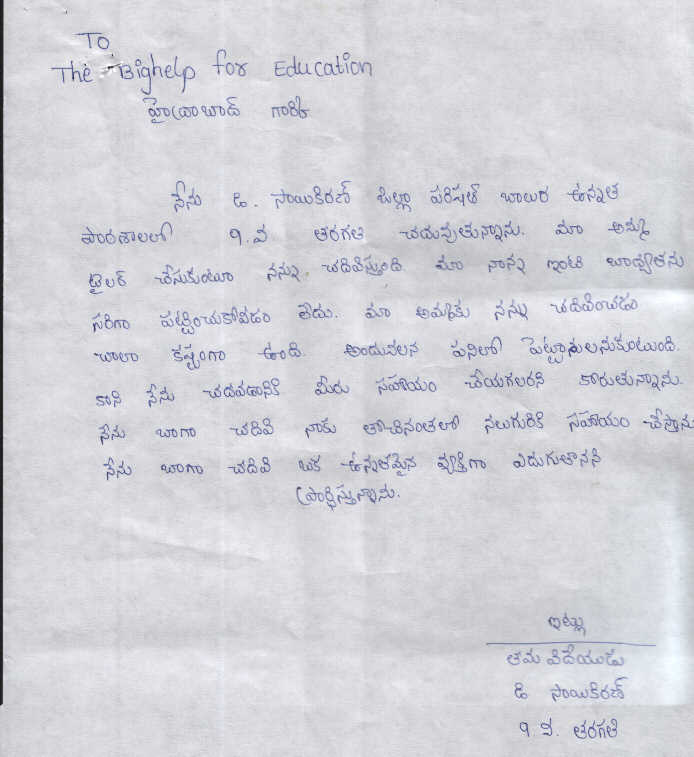 To
The Bighelp for Education
హైద్రాబాద్ గారికి
నేను డి. సాయికిరణ్ జిల్లా పరిషత్ బాలుర ఉన్నత
పాఠశాలలో 9.వ తరగతి చదువుతున్నాను. మా అమ్మ
టైలర్ చేసుకుంటూ నన్ను చదివిస్తుంది. మా నాన్న ఇంటి బాధ్యతను
సరిగా పట్టించుకోవడం లేదు. మా అమ్మకు నన్ను చదివించడం
చాలా కష్టంగా ఉంది. అందువలన పనిలో పెట్టాలనుకుంటుంది.
కాని నేను చదవడానికి మీరు సహాయం చేయగలరని కోరుతున్నాను.
నేను బాగా చదివి నాకు తోచినంతలో నలుగురికి సహాయం చేస్తాను
నేను బాగా చదివి ఒక ఉన్నతమైన వ్యక్తిగా ఎదుగుతానని
ప్రార్థిస్తున్నాను.
ఇట్లు
తమ విదేయుడు
డి సాయికిరణ్
9 వ. తరగతి